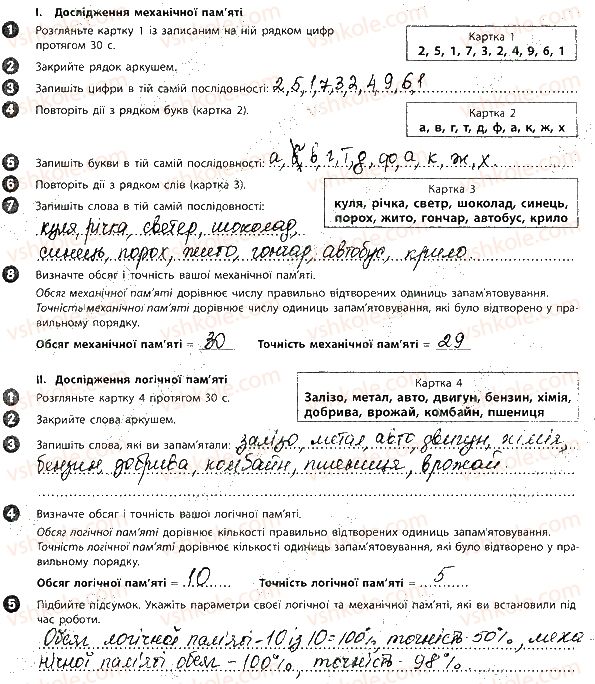 І. Дослідження механічної пам'яті
1 Розгляньте картку 1 із записаним на ній рядком цифр
протягом 30 с.
Картка 1
2, 5, 1, 7, 3, 2, 4, 9, 6, 1
2 Закрийте рядок аркушем.
3 Запишіть цифри в тій самій послідовності: 2, 5, 1, 7, 3, 2, 4, 9, 6, 1
4 Повторіть дії з рядком букв (картка 2).
Картка 2
а, в, г, т, д, ф, а, к, ж, х
5 Запишіть букви в тій самій послідовності: а, в, г, т, д, ф, а, к, ж, х.
6 Повторіть дії з рядком слів (картка 3).
Картка 3
куля, річка, светр, шоколад, синець,
порох, жито, гончар, автобус, крило
7 Запишіть слова в тій самій послідовності:
куля, річка, светер, шоколад,
синець, порох, жито, гончар, автобус, крило
8 Визначте обсяг і точність вашої механічної пам'яті.
Обсяг механічної пам'яті дорівнює числу правильно відтворених одиниць запам'ятовування.
Точність механічної пам'яті дорівнює числу одиниць запам'ятовування, які було відтворено у пра-
вильному порядку.
Обсяг механічної пам'яті = 30 Точність механічної пам'яті = 29
ІІ. Дослідження логічної пам'яті
1 Розгляньте картку 4 протягом 30 с.
Картка 4
Залізо, метал, авто, двигун, бензин, хімія,
добрива, врожай, комбайн, пшениця
2 Закрийте слова аркушем.
3 Запишіть слова, які ви запам'ятали: залізо, метал, авто, двигун, хімія,
бензин, добрива, комбайн, пшениця, врожай
4 Визначте обсяг і точність вашої логічної пам'яті.
Обсяг логічної пам'яті дорівнює кількості правильно відтворених одиниць запам'ятовування.
Точність логічної пам'яті дорівнює кількості одиниць запам'ятовування, які було відтворено у пра-
вильному порядку.
Обсяг логічної пам'яті = 10 Точність логічної пам'яті = 5
5 Підбийте підсумок. Укажіть параметри своєї логічної та механічної пам'яті, які ви встановили під
час роботи.
Обсяг логічної пам'яті - 10 із 10 = 100%, точність - 50%, меха
нічної пам'яті обсяг - 100%, точність - 98%.